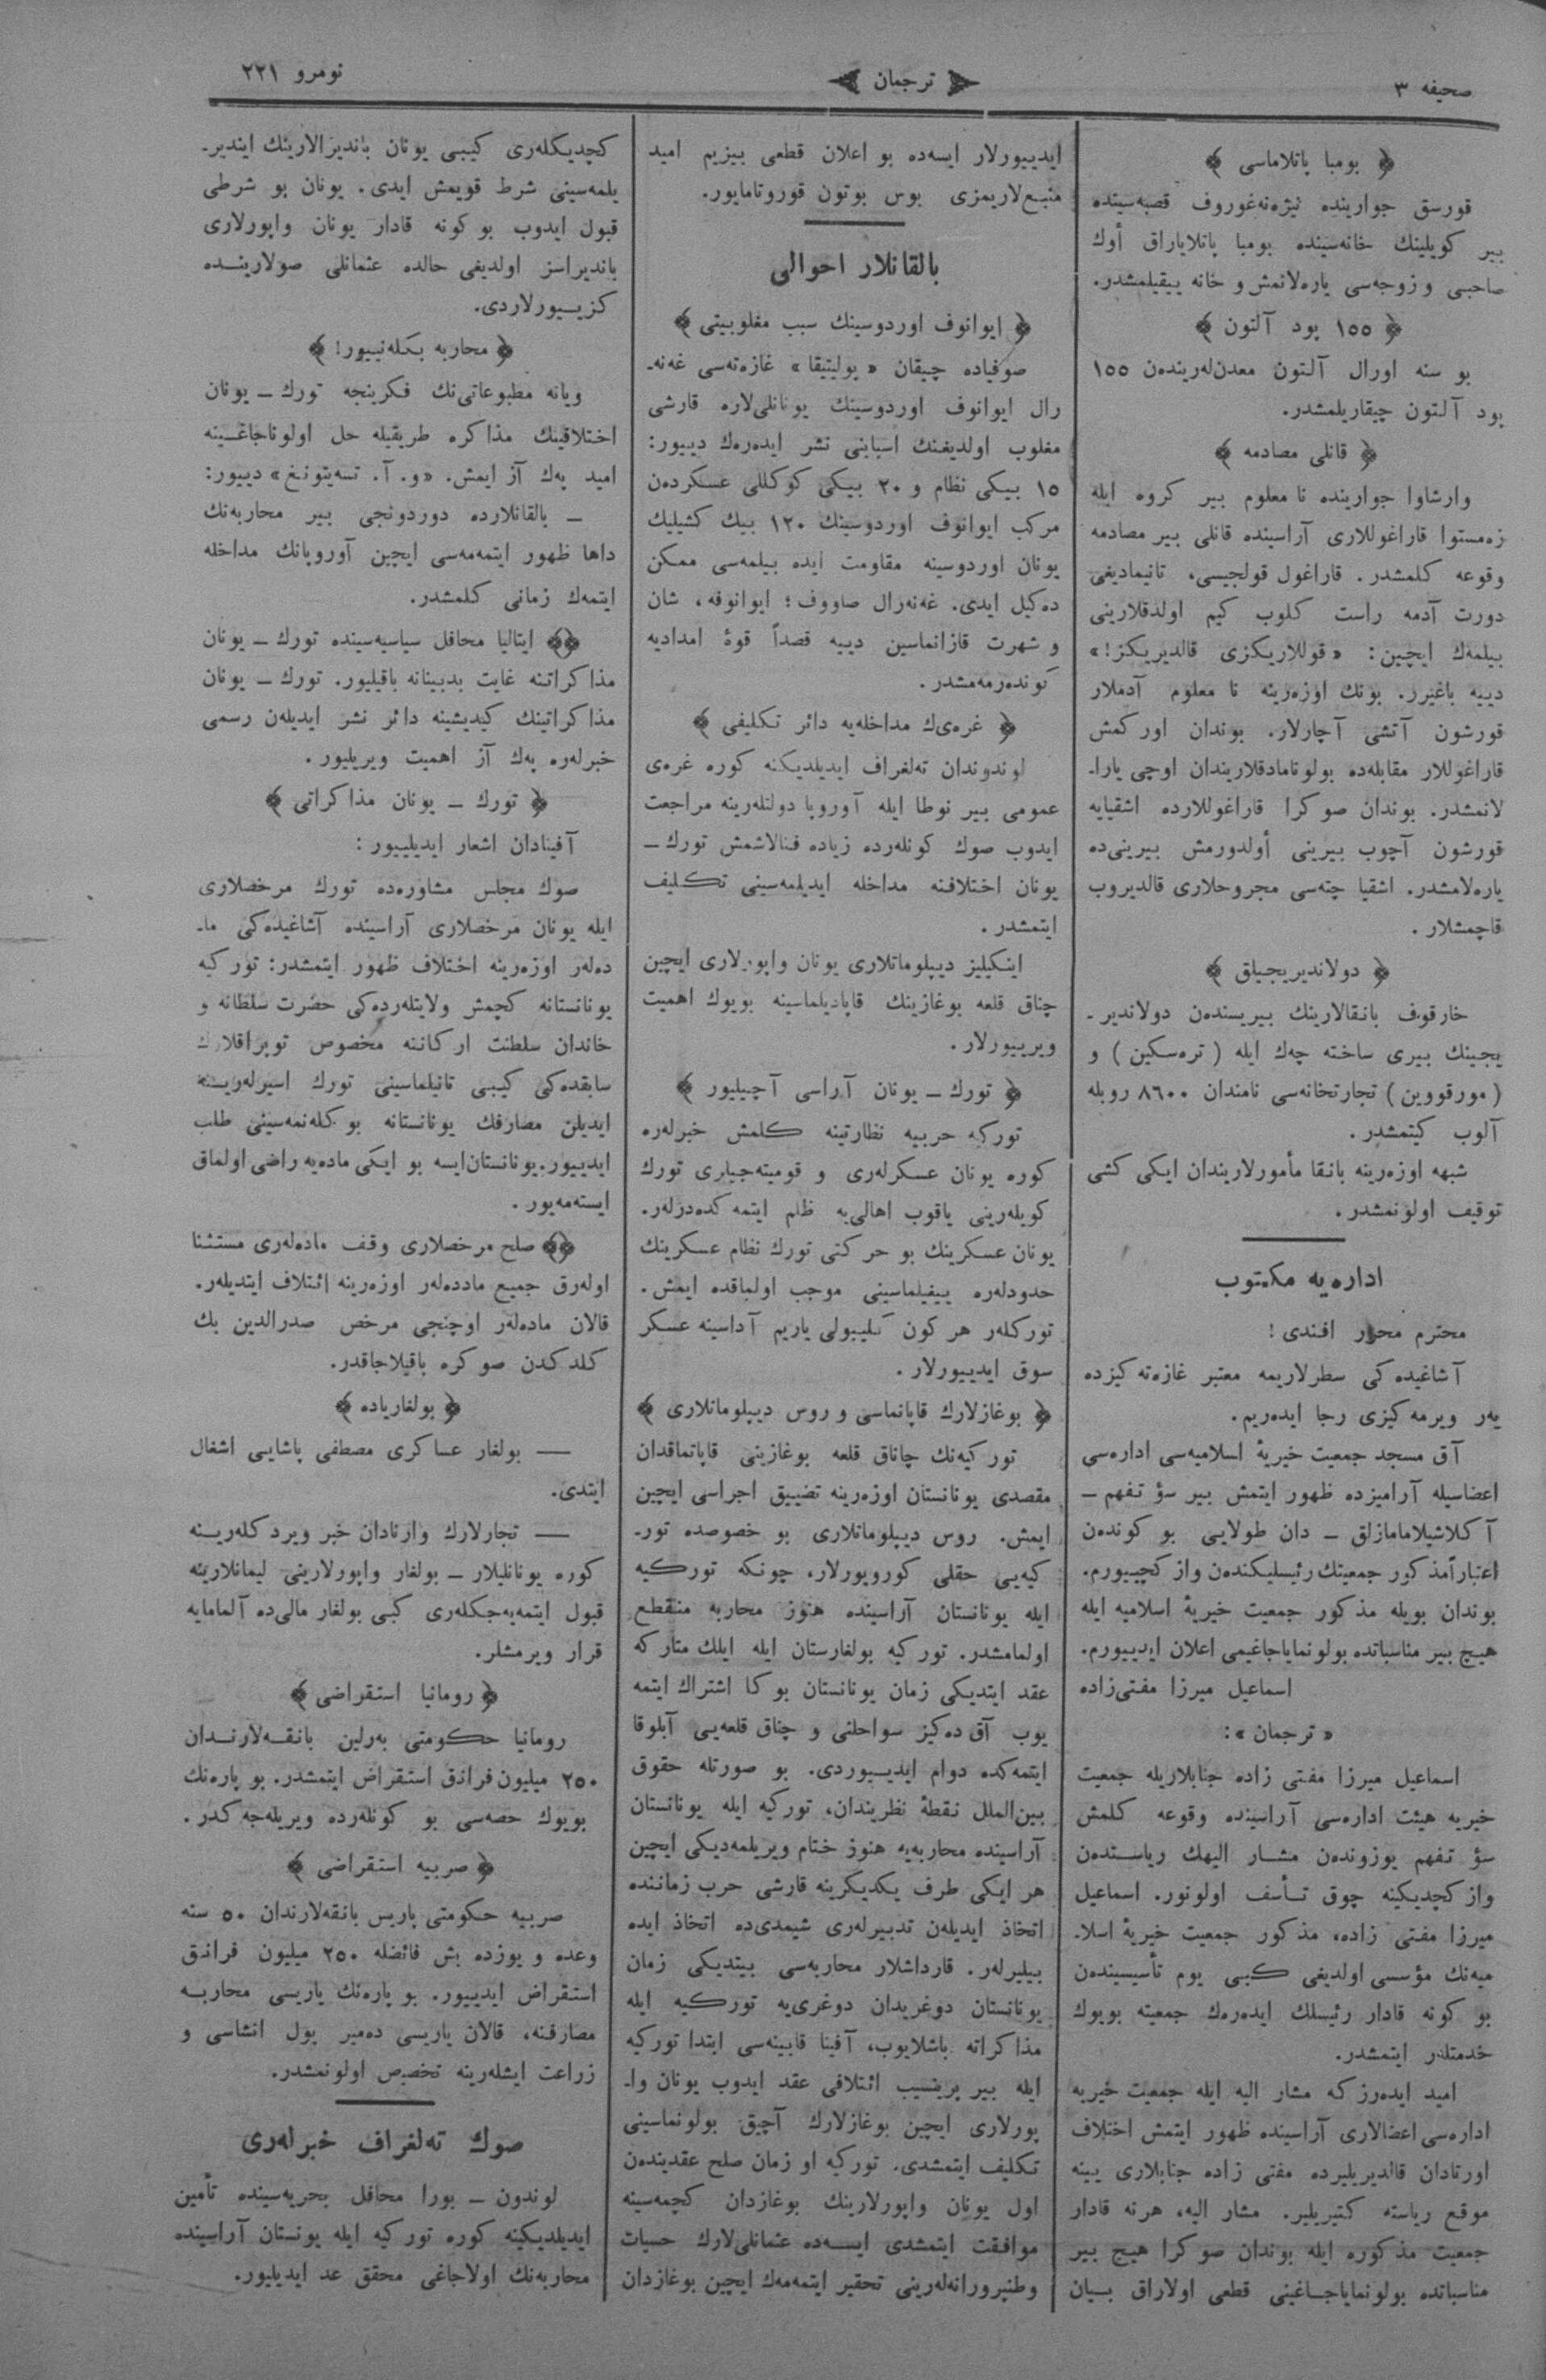 صحیفه ۳
﴾ ترجمان ﴿
نومرو ۲۲۱
﴾ بومبا پاتلاماسی ﴿
قورسق جوارینده نیژەنەغوروف قصبەسینده
بیر كویلینك خانەسینده بومبا پاتلایاراق أوك
صاحبی و زوجەسی یارەلانمش و خانه ییقیلمشدر.
﴾ ۱۵۵ پود آلتون ﴿
بو سنه اورال آلتون معدن‌لەریندەن ۱۵۵
پود آلتون چیقاریلمشدر.
﴾ قانلی مصادمه ﴿
وارشاوا جوارینده نا معلوم بیر كروه ایله
زەمستوا قاراغوللاری آراسینده قانلی بیر مصادمه
وقوعه كلمشدر. قاراغول قولجیسی، تانیمادیغی
دورت آدمه راست كلوب كیم اولدقلارینی
بیلمەك ایچین: «قوللاریكزی قالدیریكز!»
دییه باغیرر. بونك اوزەرینه نا معلوم آدملار
قورشون آتشی آچارلار. بوندان اوركمش
قاراغوللار مقابلەده بولونامادقلاریندان اوچی یارا-
لانمشدر. بوندان صوكرا قاراغوللارده اشقیایه
قورشون آچوب بیرینی أولدورمش بیرینی‌ده
یارەلامشدر. اشقیا چتەسی مجروحلاری قالدیروب
قاچمشلار.
﴾ دولاندیریجیلق ﴿
خارقوف بانقالارینك بیریسندەن دولاندیر-
یجینك بیری ساخته چەك ایله (ترەسكین) و
(مورقووین) تجارتخانەسی نامندان ۸٦۰۰ روبله
آلوب كیتمشدر.
شبهه اوزەرینه بانقا مأمورلاریندان ایكی كشی
توقیف اولونمشدر.
ادارەیه مكتوب
محترم محرر افندی!
آشاغیدەكی سطرلاریمه معتبر غازەتەكیزده
یەر ویرمەكیزی رجا ایدەریم.
آق مسجد جمعیت خیریۀ اسلامیەسی ادارەسی
اعضاسیله آرامیزده ظهور ایتمش بیر سؤ تفهم —
آكلاشیلامامازلق — دان طولایی بو كوندەن
اعتباراً مذكور جمعیتك رئیسلیكندەن واز كچییورم.
بوندان بویله مذكور جمعیت خیریۀ اسلامیه ایله
هیچ بیر مناسباتده بولونمایاجاغیمی اعلان ایدییورم.
اسماعیل میرزا مفتی‌زاده
«ترجمان»:
اسماعیل میرزا مفتی زاده جنابلاریله جمعیت
خیریه هیئت ادارەسی آراسینده وقوعه كلمش
سؤ تفهم یوزوندەن مشار الیهك ریاستدەن
واز كچدیكینه چوق تأسف اولونور. اسماعیل
میرزا مفتی زاده، مذكور جمعیت خیریۀ اسلا-
میەنك مؤسسی اولدیغی كبی یوم تأسیسیندەن
بو كونه قادار رئیسلك ایدەرەك جمعیته بویوك
خدمتلەر ایتمشدر.
امید ایدەرزكه مشار الیه ایله جمعیت خیریه
ادارەسی اعضالاری آراسینده ظهور ایتمش اختلاف
اورتادان قالدیریلیرده مفتی زاده جنابلاری یینه
موقع ریاسته كتیریلیر. مشار الیه، هرنه قادار
جمعیت مذكوره ایله بوندان صوكرا هیچ بیر
مناسباتده بولونمایاجاغینی قطعی اولاراق بیان
ایدییورلار ایسەده بو اعلان قطعی بیزیم امید
منبع‌لاریمزی بوس بوتون قوروتامایور.
بالقانلار احوالی
﴾ ایوانوف اوردوسینك سبب مغلوبیتی ﴿
صوفیاده چیقان «پولیتیقا» غازەتەسی غەنە-
رال ایوانوف اوردوسینك یونانلی‌لاره قارشی
مغلوب اولدیغنك اسبابنی نشر ایدەرەك دییور:
۱۵ بیكی نظام و ۲۰ بیكی كوكللی عسكردەن
مركب ایوانوف اوردوسینك ۱۲۰ بیك كشیلیك
یونان اوردوسینه مقاومت ایده بیلمەسی ممكن
دەكیل ایدی. غەنەرال صاووف؛ ایوانوفه، شان
و شهرت قازانماسین دییه قصداً قوۀ امدادیه
كوندەرمەمشدر.
﴾ غرەی‌ك مداخلەیه دائر تكلیفی ﴿
لوندوندان تەلغراف ایدیلدیكنه كوره غرەی
عمومی بیر نوطا ایله آوروپا دولتلەرینه مراجعت
ایدوب صوك كونلەرده زیاده فنالاشمش تورك —
یونان اختلافنه مداخله ایدیلمەسینی تكلیف
ایتمشدر.
اینكیلیز دیپلوماتلاری یونان واپورلاری ایچین
چناق قلعه بوغازینك قاپادیلماسینه بویوك اهمیت
ویرییورلار.
﴾ تورك — یونان آراسی آچیلیور ﴿
توركیه حربیه نظارتینه كلمش خبرلەره
كوره یونان عسكرلەری و قومیتەجیلری تورك
كویلەرینی یاقوب اهالی‌یه ظلم ایتمەكدەدرلەر.
یونان عسكرینك بو حركتی تورك نظام عسكرینك
حدودلەره ییغیلماسینی موجب اولماقده ایمش.
توركلەر هر كون كلیبولی یاریم آداسینه عسكر
سوق ایدییورلار.
﴾ بوغازلارك قاپانماسی و روس دیپلوماتلاری ﴿
توركیەنك چاناق قلعه بوغازینی قاپاتماقدان
مقصدی یونانستان اوزەرینه تضییق اجراسی ایچین
ایمش. روس دیپلوماتلاری بو خصوصده تور-
كیەیی حقلی كورویورلار، چونكه توركیه
ایله یونانستان آراسینده هنوز محاربه منقطع
اولمامشدر. توركیه بولغارستان ایله ایلك متاركه
عقد ایتدیكی زمان یونانستان بوكا اشتراك ایتمه
یوب آق دەكیز سواحلنی و چناق قلعەیی آبلوقا
ایتمەكده دوام ایدییوردی. بو صورتله حقوق
بین‌الملل نقطۀ نظریندان، توركیه ایله یونانستان
آراسینده محاربەیه هنوز ختام ویریلمەدیكی ایچین
هر ایكی طرف یكدیكرینه قارشی حرب زماننده
اتخاذ ایدیلەن تدبیرلەری شیمدی‌ده اتخاذ ایده
بیلیرلەر. قارداشلار محاربەسی بیتدیكی زمان
یونانستان دوغریدان دوغری‌یه توركیه ایله
مذاكراته باشلایوب، آفینا قابینەسی ابتدا توركیه
ایله بیر پرینسیپ ائتلافی عقد ایدوب یونان وا-
پورلاری ایچین بوغازلارك آچیق بولونماسینی
تكلیف ایتمشدی. توركیه او زمان صلح عقدیندەن
اول یونان واپورلارینك بوغازدان كچمەسینه
موافقت ایتمشدی ایسەده عثمانلی‌لارك حسیات
وطنپرورانەلەرینی تحقیر ایتمەمەك ایچین بوغازدان
كچدیكلەری كیبی یونان باندیرالارینك ایندیر-
یلمەسینی شرط قویمش ایدی. یونان بو شرطی
قبول ایدوب بوكونه قادار یونان واپورلاری
باندیراسز اولدیغی حالده عثمانلی صولارینده
كزییورلاردی.
﴾ محاربه بكلەنییور! ﴿
ویانه مطبوعاتی‌نك فكرینجه تورك — یونان
اختلافینك مذاكره طریقیله حل اولوناجاغینه
امید پەك آز ایمش. «و. آ. تسەیتونغ» دییور:
— بالقانلارده دوردونجی بیر محاربەنك
داها ظهور ایتمەمەسی ایچین آوروپانك مداخله
ایتمەك زمانی كلمشدر.
﴾﴿ ایتالیا محافل سیاسیەسینده تورك — یونان
مذاكراتنه غایت بدبینانه باقیلیور. تورك — یونان
مذاكراتینك كیدیشینه دائر نشر ایدیلەن رسمی
خبرلەره پەك آز اهمیت ویریلیور.
﴾ تورك — یونان مذاكراتی ﴿
آفینادان اشعار ایدیلییور:
صوك مجلس مشاورەده تورك مرخصلاری
ایله یونان مرخصلاری آراسینده آشاغیدەكی ما-
دەلەر اوزەرینه اختلاف ظهور ایتمشدر: توركیه
یونانستانه كچمش ولایتلەردەكی حضرت سلطانه و
خاندان سلطنت اركاننه مخصوص توپراقلارك
سابقدەكی كیبی تانیلماسینی تورك اسیرلەرینه
ایدیلن مصارفك یونانستانه یوكلەنمەسینی طلب
ایدییور. یونانستان ایسه بو ایكی مادەیه راضی اولماق
ایستەمەیور.
﴾﴿ صلح مرخصلاری وقف مادەلەری مستثنا
اولەرق جمیع ماددەلەر اوزەرینه ائتلاف ایتدیلەر.
قالان مادەلەر اوچنجی مرخص صدرالدین بك
كلدكدن صوكره باقیلاجاقدر.
﴾ بولغاریاده ﴿
— بولغار عساكری مصطفی پاشایی اشغال
ایتدی.
— تجارلارك وارنادان خبر ویردكلەرینه
كوره یونانلیلار — بولغار واپورلارینی لیمانلارینه
قبول ایتمەیەجكلەری كبی بولغار مالی‌ده آلمامایه
قرار ویرمشلر.
﴾ رومانیا استقراضی ﴿
رومانیا حكومتی بەرلین بانقەلارندان
۲۵۰ میلیون فرانق استقراض ایتمشدر. بو پارەنك
بویوك حصەسی بو كونلەرده ویریلەجەكدر.
﴾ صربیه استقراضی ﴿
صربیه حكومتی پاریس بانقەلارندان ۵۰ سنه
وعده و یوزده بش فائضله ۲۵۰ میلیون فرانق
استقراض ایدییور. بو پارەنك یاریسی محاربه
مصارفنه، قالان یاریسی دەمیر یول انشاسی و
زراعت ایشلەرینه تخصیص اولونمشدر.
صوك تەلغراف خبرلەری
لوندون — بورا محافل بحریەسینده تأمین
ایدیلدیكینه كوره توركیه ایله یونستان آراسینده
محاربەنك اولاجاغی محقق عد ایدیلیور.